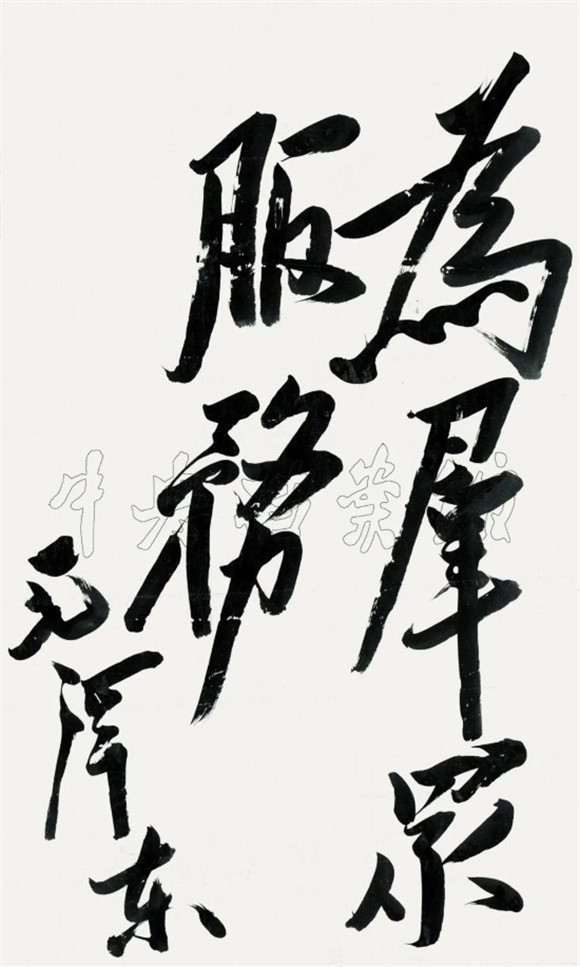 為羣眾
服務
毛泽东
中央档案馆